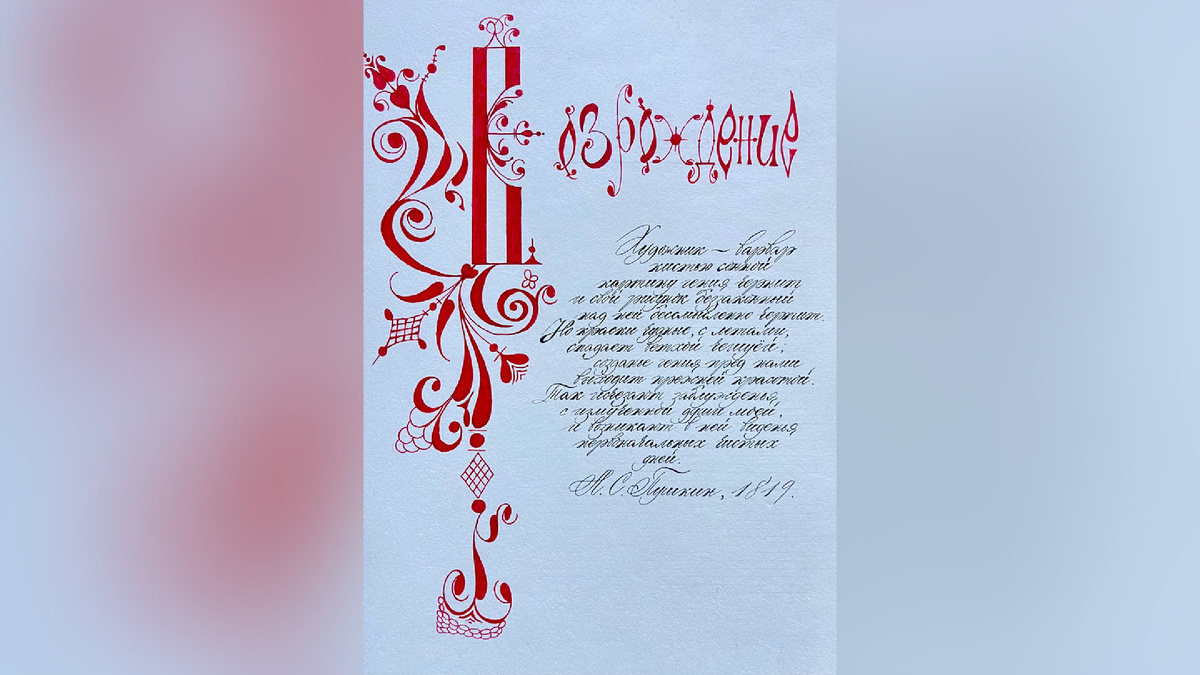 Возрождение
Художник — варвар
кистью сонной
картину гения чернит
и свой рисунок беззаконный
над ней бессмысленно чертит.
Но краски чуждые, с летами,
спадают ветхой чешуёй;
созданье гения пред нами
выходит прежней красотой.
Так исчезают заблужденья
с измученной души моей,
и возникают в ней виденья
первоначальных чистых
дней.
А. С. Пушкин, 1819.